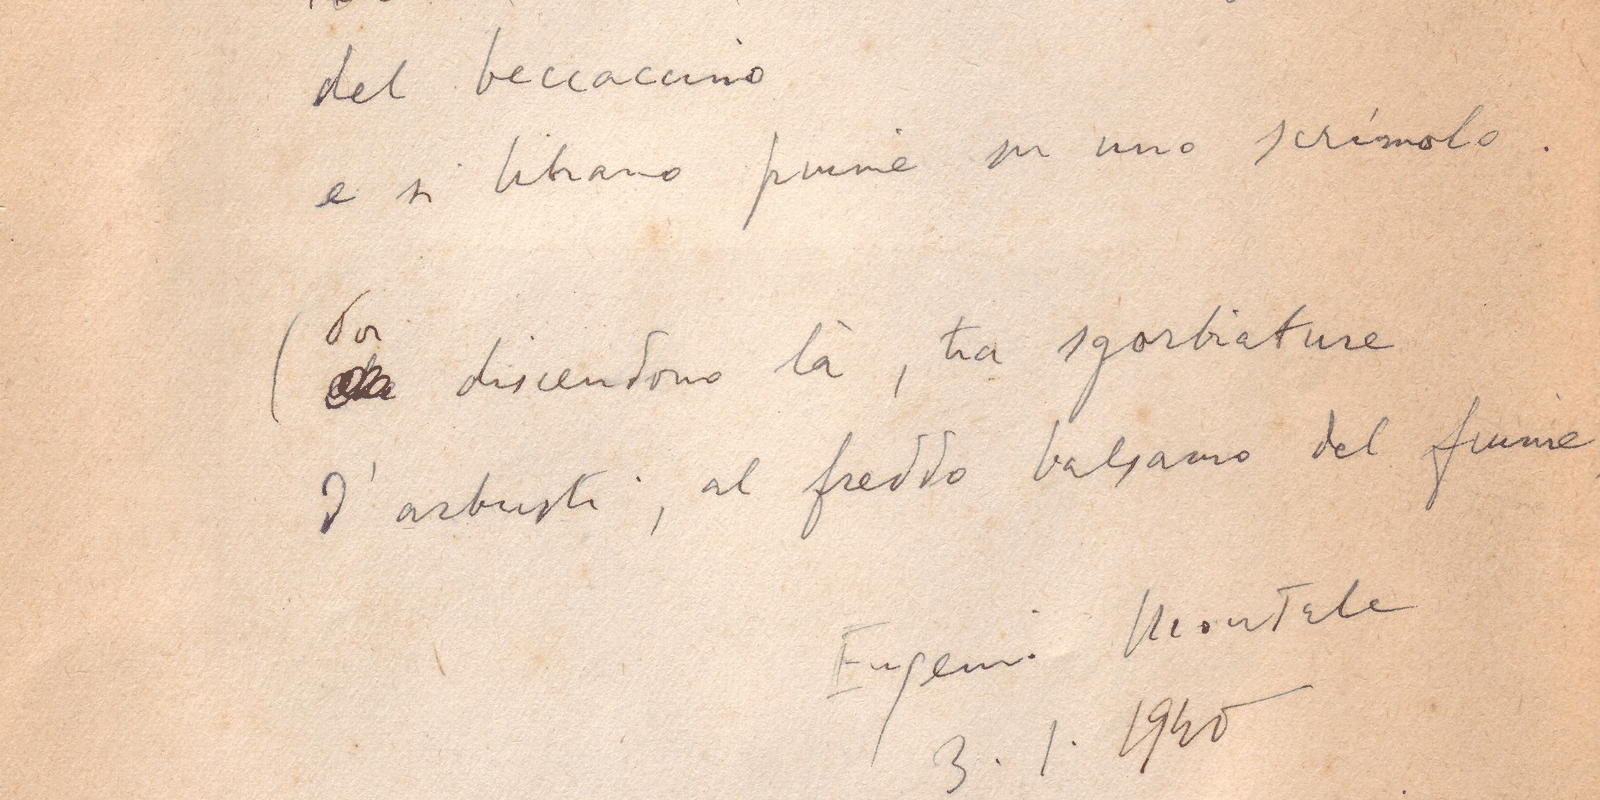 del beccaccino
e si librano piume su uno scrímolo.
(Poi
discendono là, tra sgorbiature
d'arbusti, al freddo balsamo del fiume
Eugenio Montale
3.1.1940